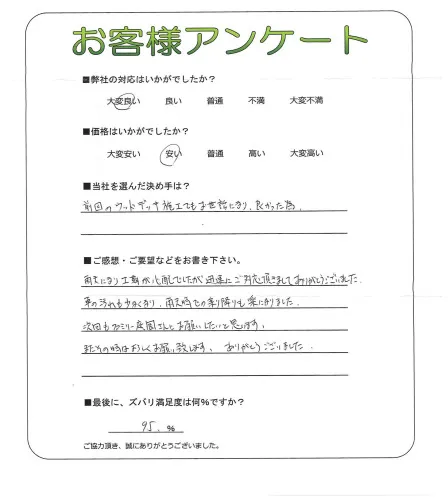 お客様アンケート
■弊社の対応はいかがでしたか?
大変良い 良い 普通 不満 大変不満
■価格はいかがでしたか?
大変安い 安い 普通 高い 大変高い
■当社を選んだ決め手は?
前回のウッドデッキ施工でもお世話になり、良かった為。
■ご感想・ご要望などをお書き下さい。
雨天になり工事が心配でしたが迅速にご対応頂きましてありがとうございました。
車の汚れも少なくなり、雨天時での乗り降りも楽になりました。
次回もファミリー庭園さんとお願いしたいと思います。
またその時はよろしくお願い致します。ありがとうございました。
■最後に、ズバリ満足度は何%ですか?
95. %
ご協力頂き、誠にありがとうございました。